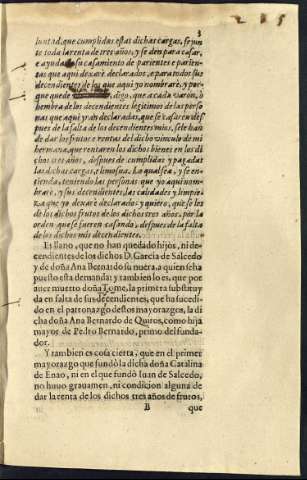 215
3
luntad, que cumplidas estas dichas cargas, se jun-
te toda la renta de tres años, y se den para casar,
e ayuda su casamiento de parientes e parien-
tas que aqui dexarè declarados, e para todos sus
decendientes de los que aqui yo nombrare, y por-
que quede digo, que a cada varon, ò
hembra de los decendientes legitimos de las perso-
nas que aqui yràn declaradas, que se casaren des-
pues de la falta de los decendientes mios, se le han
de dar los frutos e rentas del dicho vinculo de mi
hermana, que rentaren los dichos bienes en los di-
chos tres años, despues de cumplidas y pagadas
las dichas cargas, e limosna. Lo qual sea, y se en-
tienda, teniendo las personas que yo aqui nom-
brarè, y sus decendientes, las calidades y limpie-
za que yo dexarè declarado: y quiero, que se les
de los dichos frutos de los dichos tres años, por la
orden que se fueren casando, despues de la falta
de los dichos mis decendientes.
Es llano, que no han quedado hijos, ni de-
cendientes de los dichos D. Garcia de Salcedo
y de doña Ana Bernardo su nuera, a quien se ha
puesto esta demanda: y tambien lo es, que por
auer muerto doña Tome, la primera substituy
da en falta de sus decendientes, que ha sucedi-
do en el patronazgo destos mayorazgos, la di
cha doña Ana Bernardo de Quiros, como hija
mayor de Pedro Bernardo, primo del funda-
dor.
Y tambien es cosa cierta, que en el primer
mayorazgo que fundò la dicha doña Catalina
de Enao, ni en el que fundò Iuan de Salcedo,
no huuo grauamen, ni condicion alguna de
dar la renta de los dichos tres años de frutos,
B que